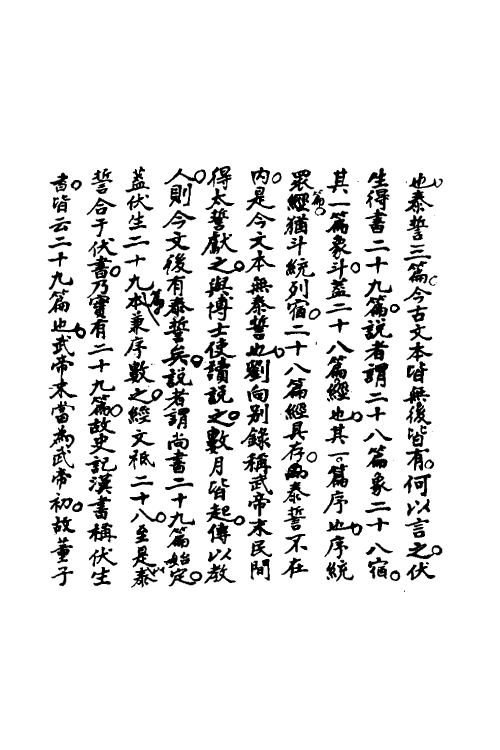 也泰誓三篇今古文本皆無後皆有何以言之伏
生得書二十九篇說者謂二十八篇象二十八宿
其一篇象斗蓋二十八篇經也其一篇序也序統
眾篇經猶斗統列宿二十八篇經具存而泰誓不在
內是今文本無泰誓也劉向別錄稱武帝末民間
得太誓獻之與博士使讀說之數月皆起傳以教
人則今文後有泰誓矣說者謂尚書二十九篇始定
蓋伏生二十九篇本兼序數之經文祗二十八至是泰
誓合于伏書乃實有二十九篇故史記漢書稱伏生
書皆云二十九篇也武帝末當為武帝初故董子